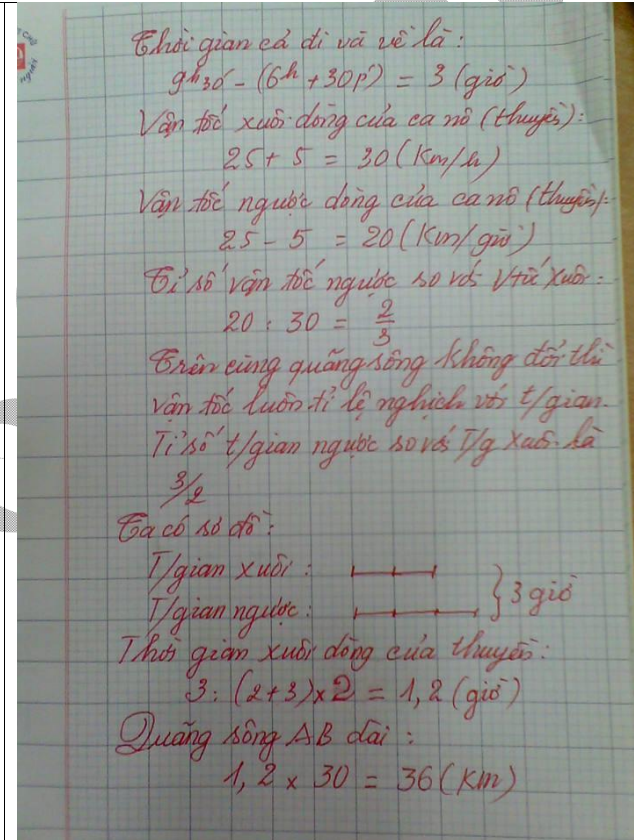 Thời gian cả đi và về là:
9h30' - (6h + 30p') = 3 (giờ)
Vận tốc xuôi dòng của ca nô (thuyền):
25 + 5 = 30 (Km/h)
Vận tốc ngược dòng của ca nô (thuyền):
25 - 5 = 20 (Km/giờ)
Tỉ số vận tốc ngược so với v/tốc xuôi:
20 : 30 = 2/3
Trên cùng quãng sông không đổi thì
vận tốc luôn tỉ lệ nghịch với t/gian.
Tỉ số t/gian ngược so với T/g xuôi là
3/2
Ta có sơ đồ:
T/gian xuôi:
T/gian ngược: } 3 giờ
Thời gian xuôi dòng của thuyền:
3 : (2+3) x 2 = 1,2 (giờ)
Quãng sông AB dài:
1,2 x 30 = 36 (Km)